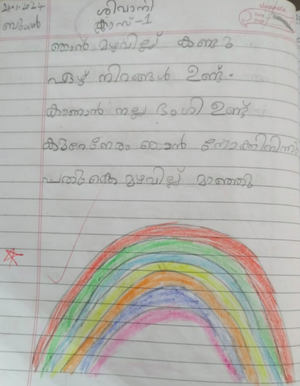 ശിവാനി
ക്ലാസ്-1
ബുധൻ
ഞാൻ മഴവില്ല് കണ്ടു
ഏഴ് നിറങ്ങൾ ഉണ്ട്.
കാണാൻ നല്ല ഭംഗി ഉണ്ട്
കുറെനേരം ഞാൻ നോക്കിനിന്നു
പതുക്കെ മഴവില്ല് മാഞ്ഞു